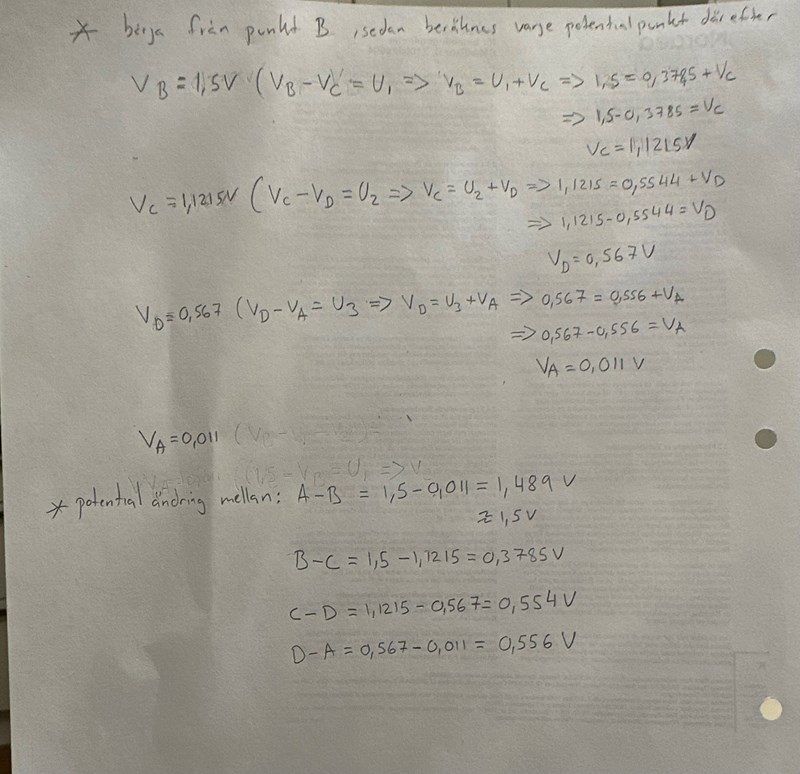 * börja från punkt B, sedan beräknas varje potentialpunkt därefter
V_B = 1,5V (V_B - V_C = U_1 => V_B = U_1 + V_C => 1,5 = 0,3785 + V_C
=> 1,5 - 0,3785 = V_C
V_C = 1,1215V
V_C = 1,1215V (V_C - V_D = U_2 => V_C = U_2 + V_D => 1,1215 = 0,5544 + V_D
=> 1,1215 - 0,5544 = V_D
V_D = 0,567 V
V_D = 0,567 (V_D - V_A = U_3 => V_D = U_3 + V_A => 0,567 = 0,556 + V_A
=> 0,567 - 0,556 = V_A
V_A = 0,011 V
V_A = 0,011
* potential ändring mellan: A-B = 1,5 - 0,011 = 1,489 V
≈ 1,5V
B-C = 1,5 - 1,1215 = 0,3785V
C-D = 1,1215 - 0,567 = 0,554 V
D-A = 0,567 - 0,011 = 0,556 V